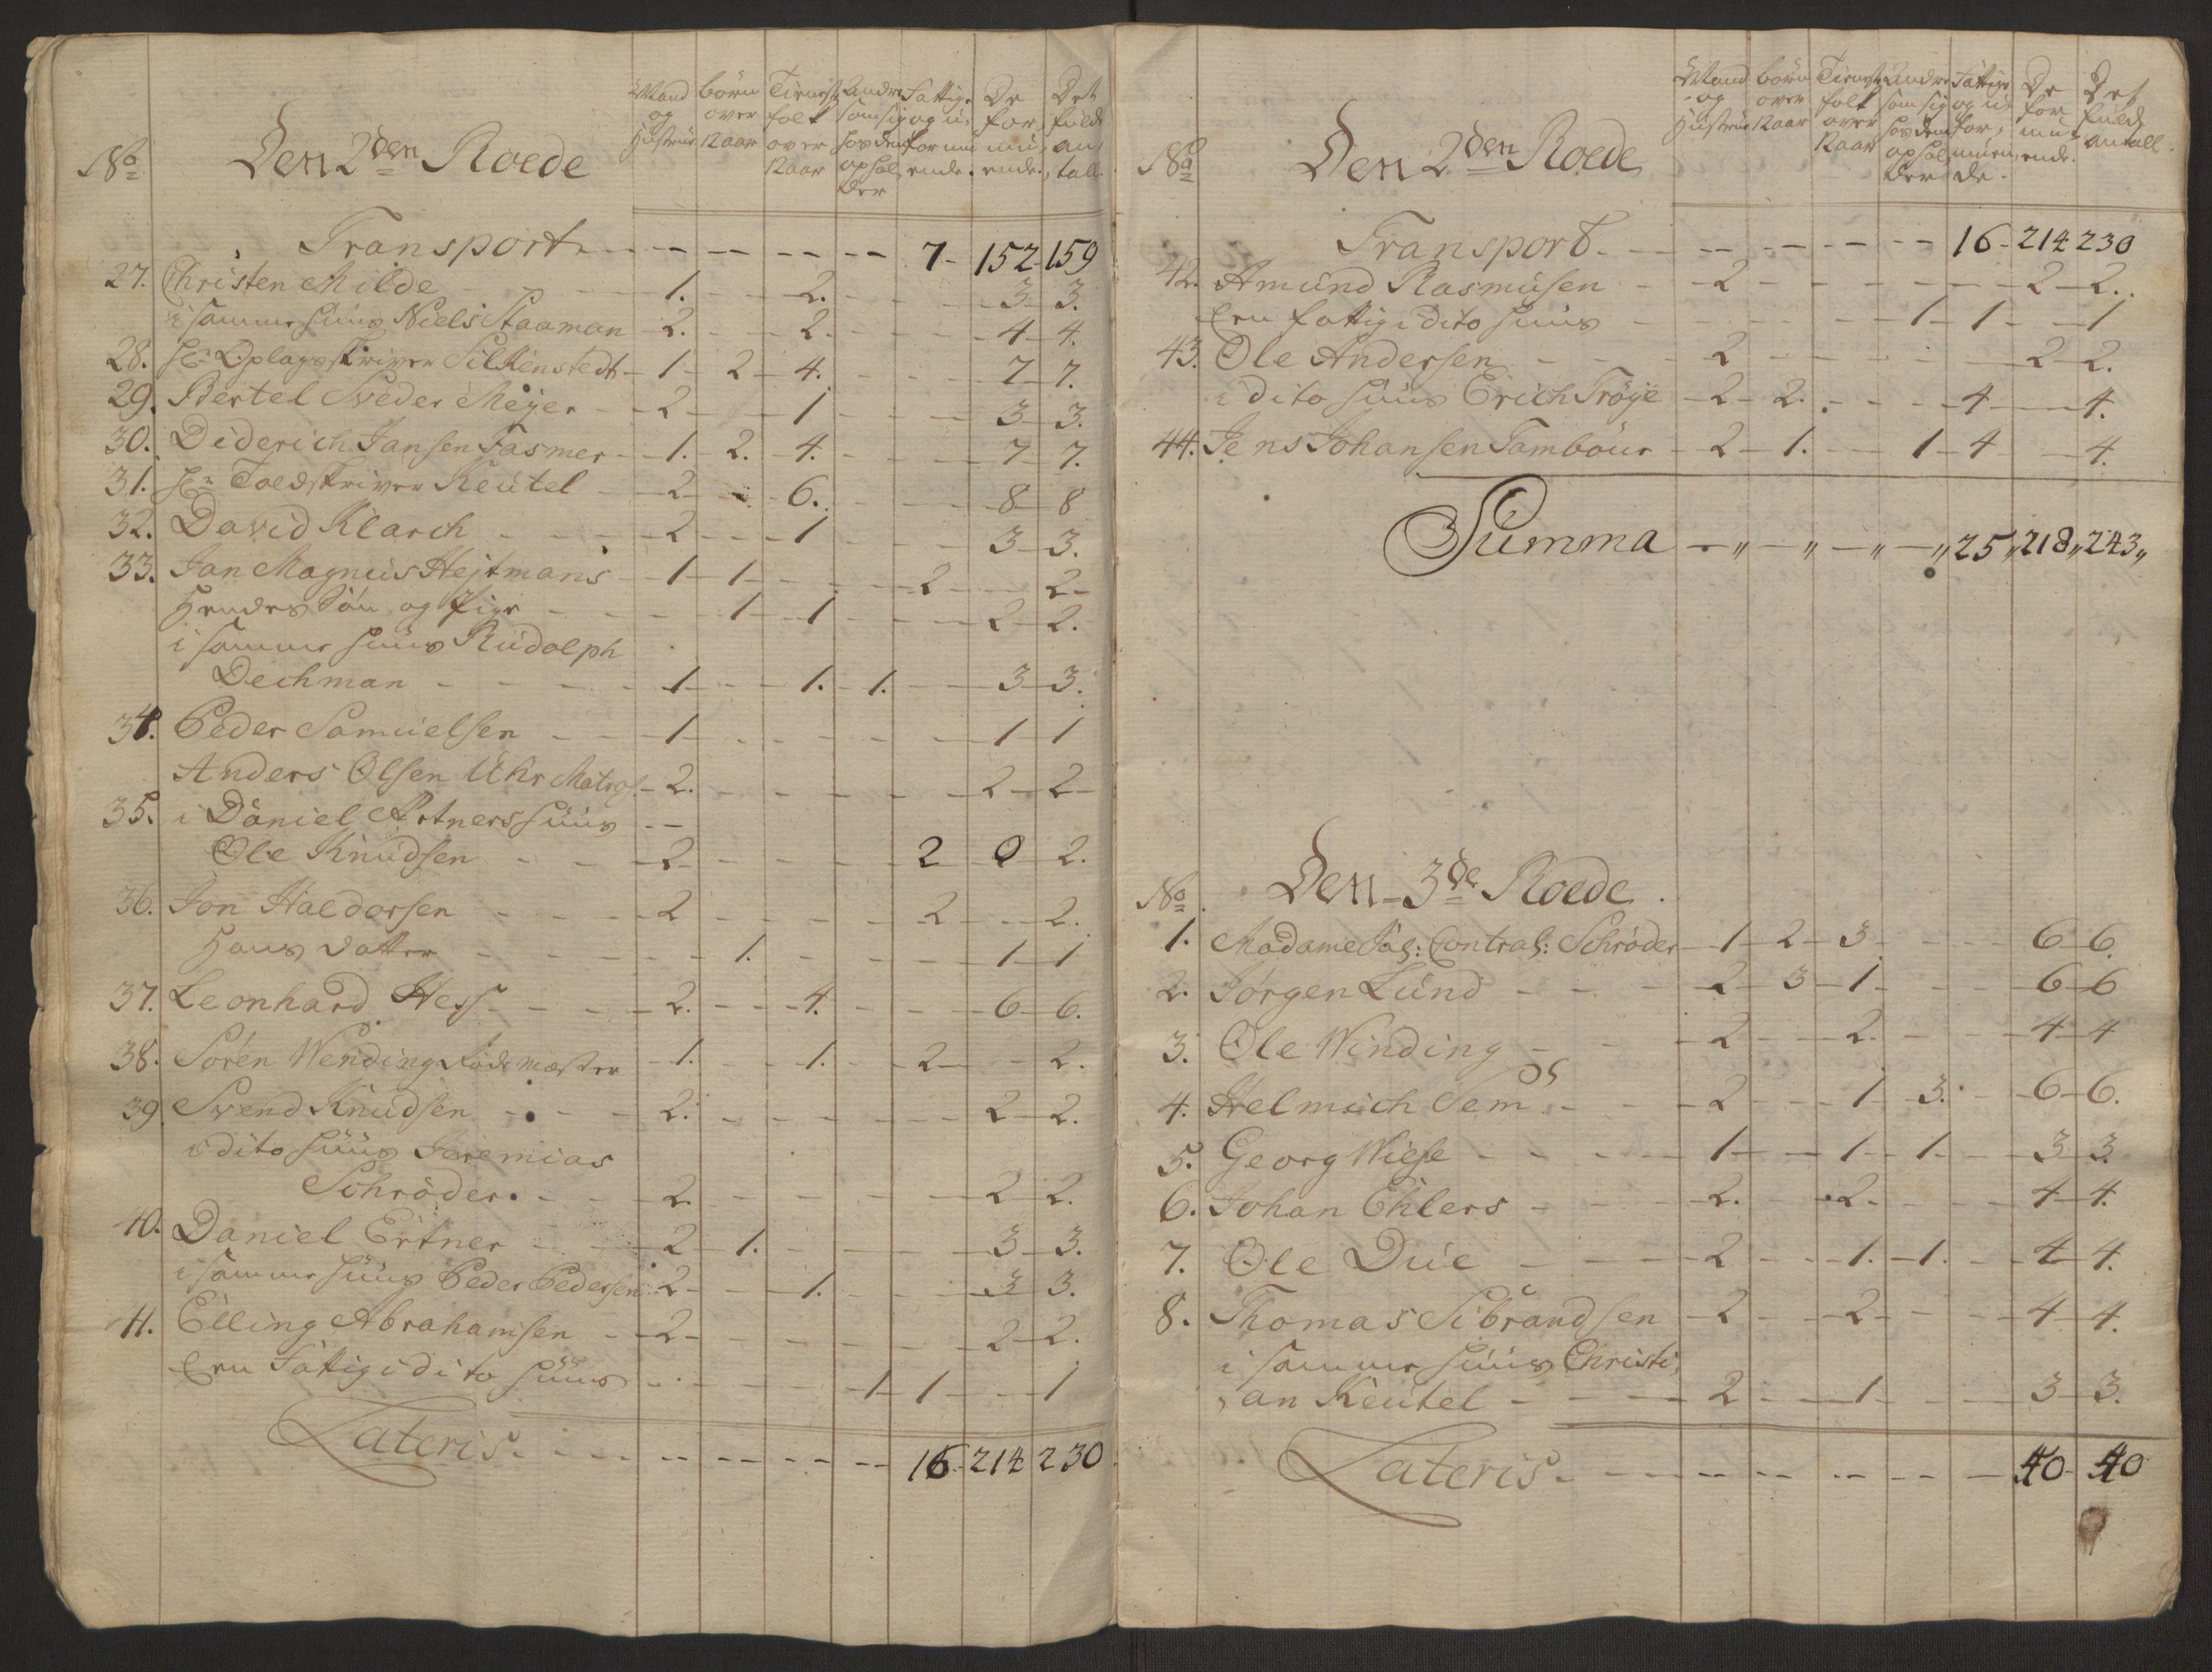 No Den 2den Roede
Mand og Hustrue
börn over 12 aar
Tieneste folk over 12 aar
Andre som sig hos dem ophol der
Fattige og u, formu ende.
De for, mu, ende,
Det fulde an, tall.
Transport 7 152 159
27. Christen Milde 1. 2. 3 3.
i samme huus Niels Staaman 2. 2. 4 4.
28. Hr Oplagsskriver Silkenstedt 1 2 4. 7 7.
29. Bertel Sveder Meyer 2 1 3 3.
30. Diderich Jansen Fasmer 1. 2. 4. 7 7.
31. Hr Toldskriver Keutel 2 6. 8 8
32. David Klarch 2 1 3 3.
33. Jan Magnus Hejtmans 1 1 2 2
Hendes Sön og Pige 1 1 2 2.
i samme huus Rudolph
Dechman 1 1. 1. 3 3.
34. Peder Samuelsen 1 1 1
Anders Olsen Uhr Matros 2. 2 2
35. i Daniel Artners huus
Ole Knudsen 2 2 0 2.
36. Jon Haldorsen 2 2 2.
Hans datter 1. 1 1
37. Leonhard Hess 2. 4. 6 6.
38. Sören Wending Rode mester 1. 1. 2 2.
39. Svend Knudsen 2. 2 2.
i dito huus Jeremias
Schröder. 2. 2 2.
40. Daniel Ertner 2 1. 3 3.
i samme huus Peder Pedersen 2 1. 3 3.
41. Elling Abrahamsen 2 2 2.
Een Fattig i dito huus 1 1 1
Lateris. 16 214 230
No Den 2den Roede
Mand og Hustrue
börn over 12 aar
Tieneste folk over 12 aar
Andre som sig hos dem ophol der
Fattige og u, for, muen, de.
De for mu ende.
Det fulde antall.
Transport. 16 214 230
42. Amund Rasmusen 2 2 2.
Een fattig i dito huus 1 1 1
43. Ole Andersen 2 2 2.
i dito huus Erich Tröye 2 2. 4 4.
44. Jens Johansen Tambour 2 1. 1 4 4.
Summa „ „ „ „ 25„ 218„ 243„
No Den 3de Roede.
1. Madame Sal: Contral: Schröder 1 2 3 6 6.
2. Jörgen Lund 2 3 1. 6 6
3. Ole Winding 2 2. 4 4
4. Helmich Sem 2 1 3. 6 6.
5. Georg Wiese 1 1 1. 3 3.
6. Johan Ehlers 2. 2. 4 4.
7. Ole Due 2 1. 1. 4 4.
8. Thomas Sibrandsen 2 2 4 4.
i samme huus Christi,
, an Keutel 2 1 3 3.
Lateris. 40 40